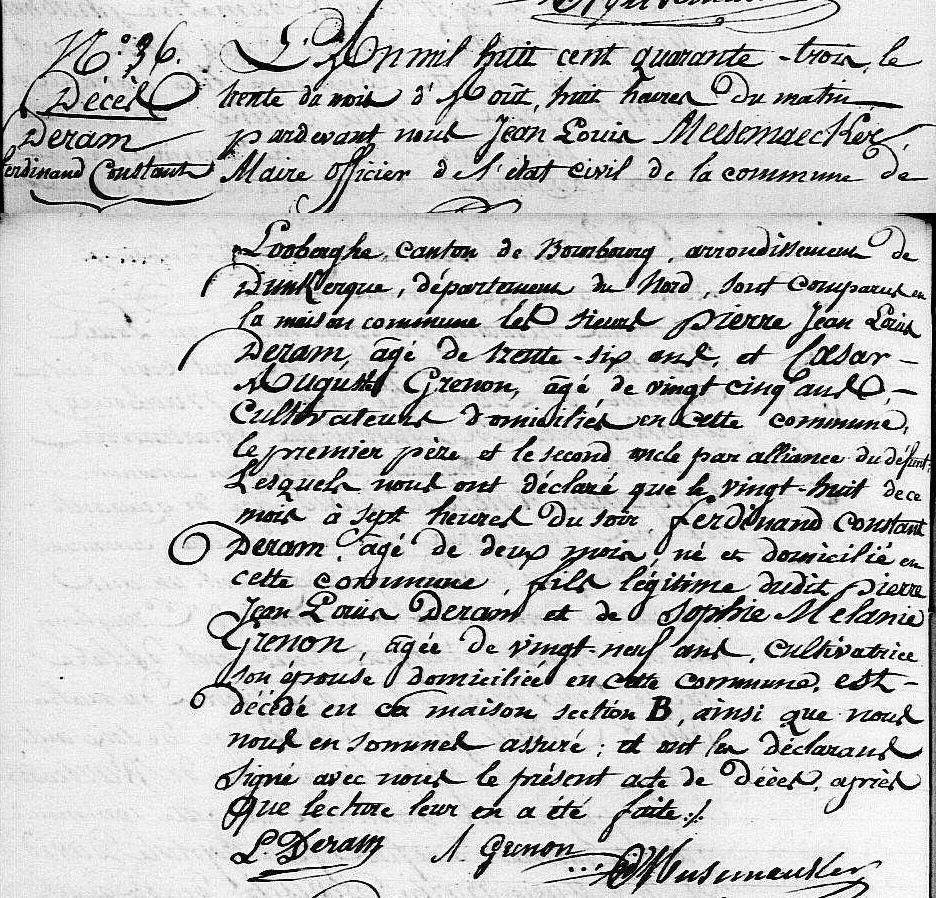 N.° 36.
Décès
Deram
Ferdinand Constant
L'An mil huit cent quarante-trois, le
trente du mois d'Août, huit heures du matin
pardevant nous Jean Louis Meesemaecker
Maire officier de l'état civil de la commune de
Looberghe, canton de Bourbourg, arrondissement de
Dunkerque, département du Nord, sont comparus en
la maison commune les sieurs pierre Jean Louis
Deram, âgé de trente-six ans, et Cæsar-
Auguste Grenon, âgé de vingt cinq ans,-
Cultivateurs domiciliés en cette commune,
le premier père et le second oncle par alliance du défunt.
Lesquels nous ont déclaré que le vingt-huit de ce
mois à sept heures du soir, ferdinand constant
Deram âgé de deux mois né et domicilié en
cette commune, fils légitime dudit pierre
Jean Louis Deram et de Sophie Mélanie
Grenon, âgée de vingt-neuf ans, cultivatrice
son épouse domiciliée en cette commune, est-
décédé en sa maison section B, ainsi que nous
nous en sommes assuré; et ont les déclarans
signé avec nous le présent acte de décès, après
que lecture leur en a été faite./.
L Deram A Grenon
Meesemaecker